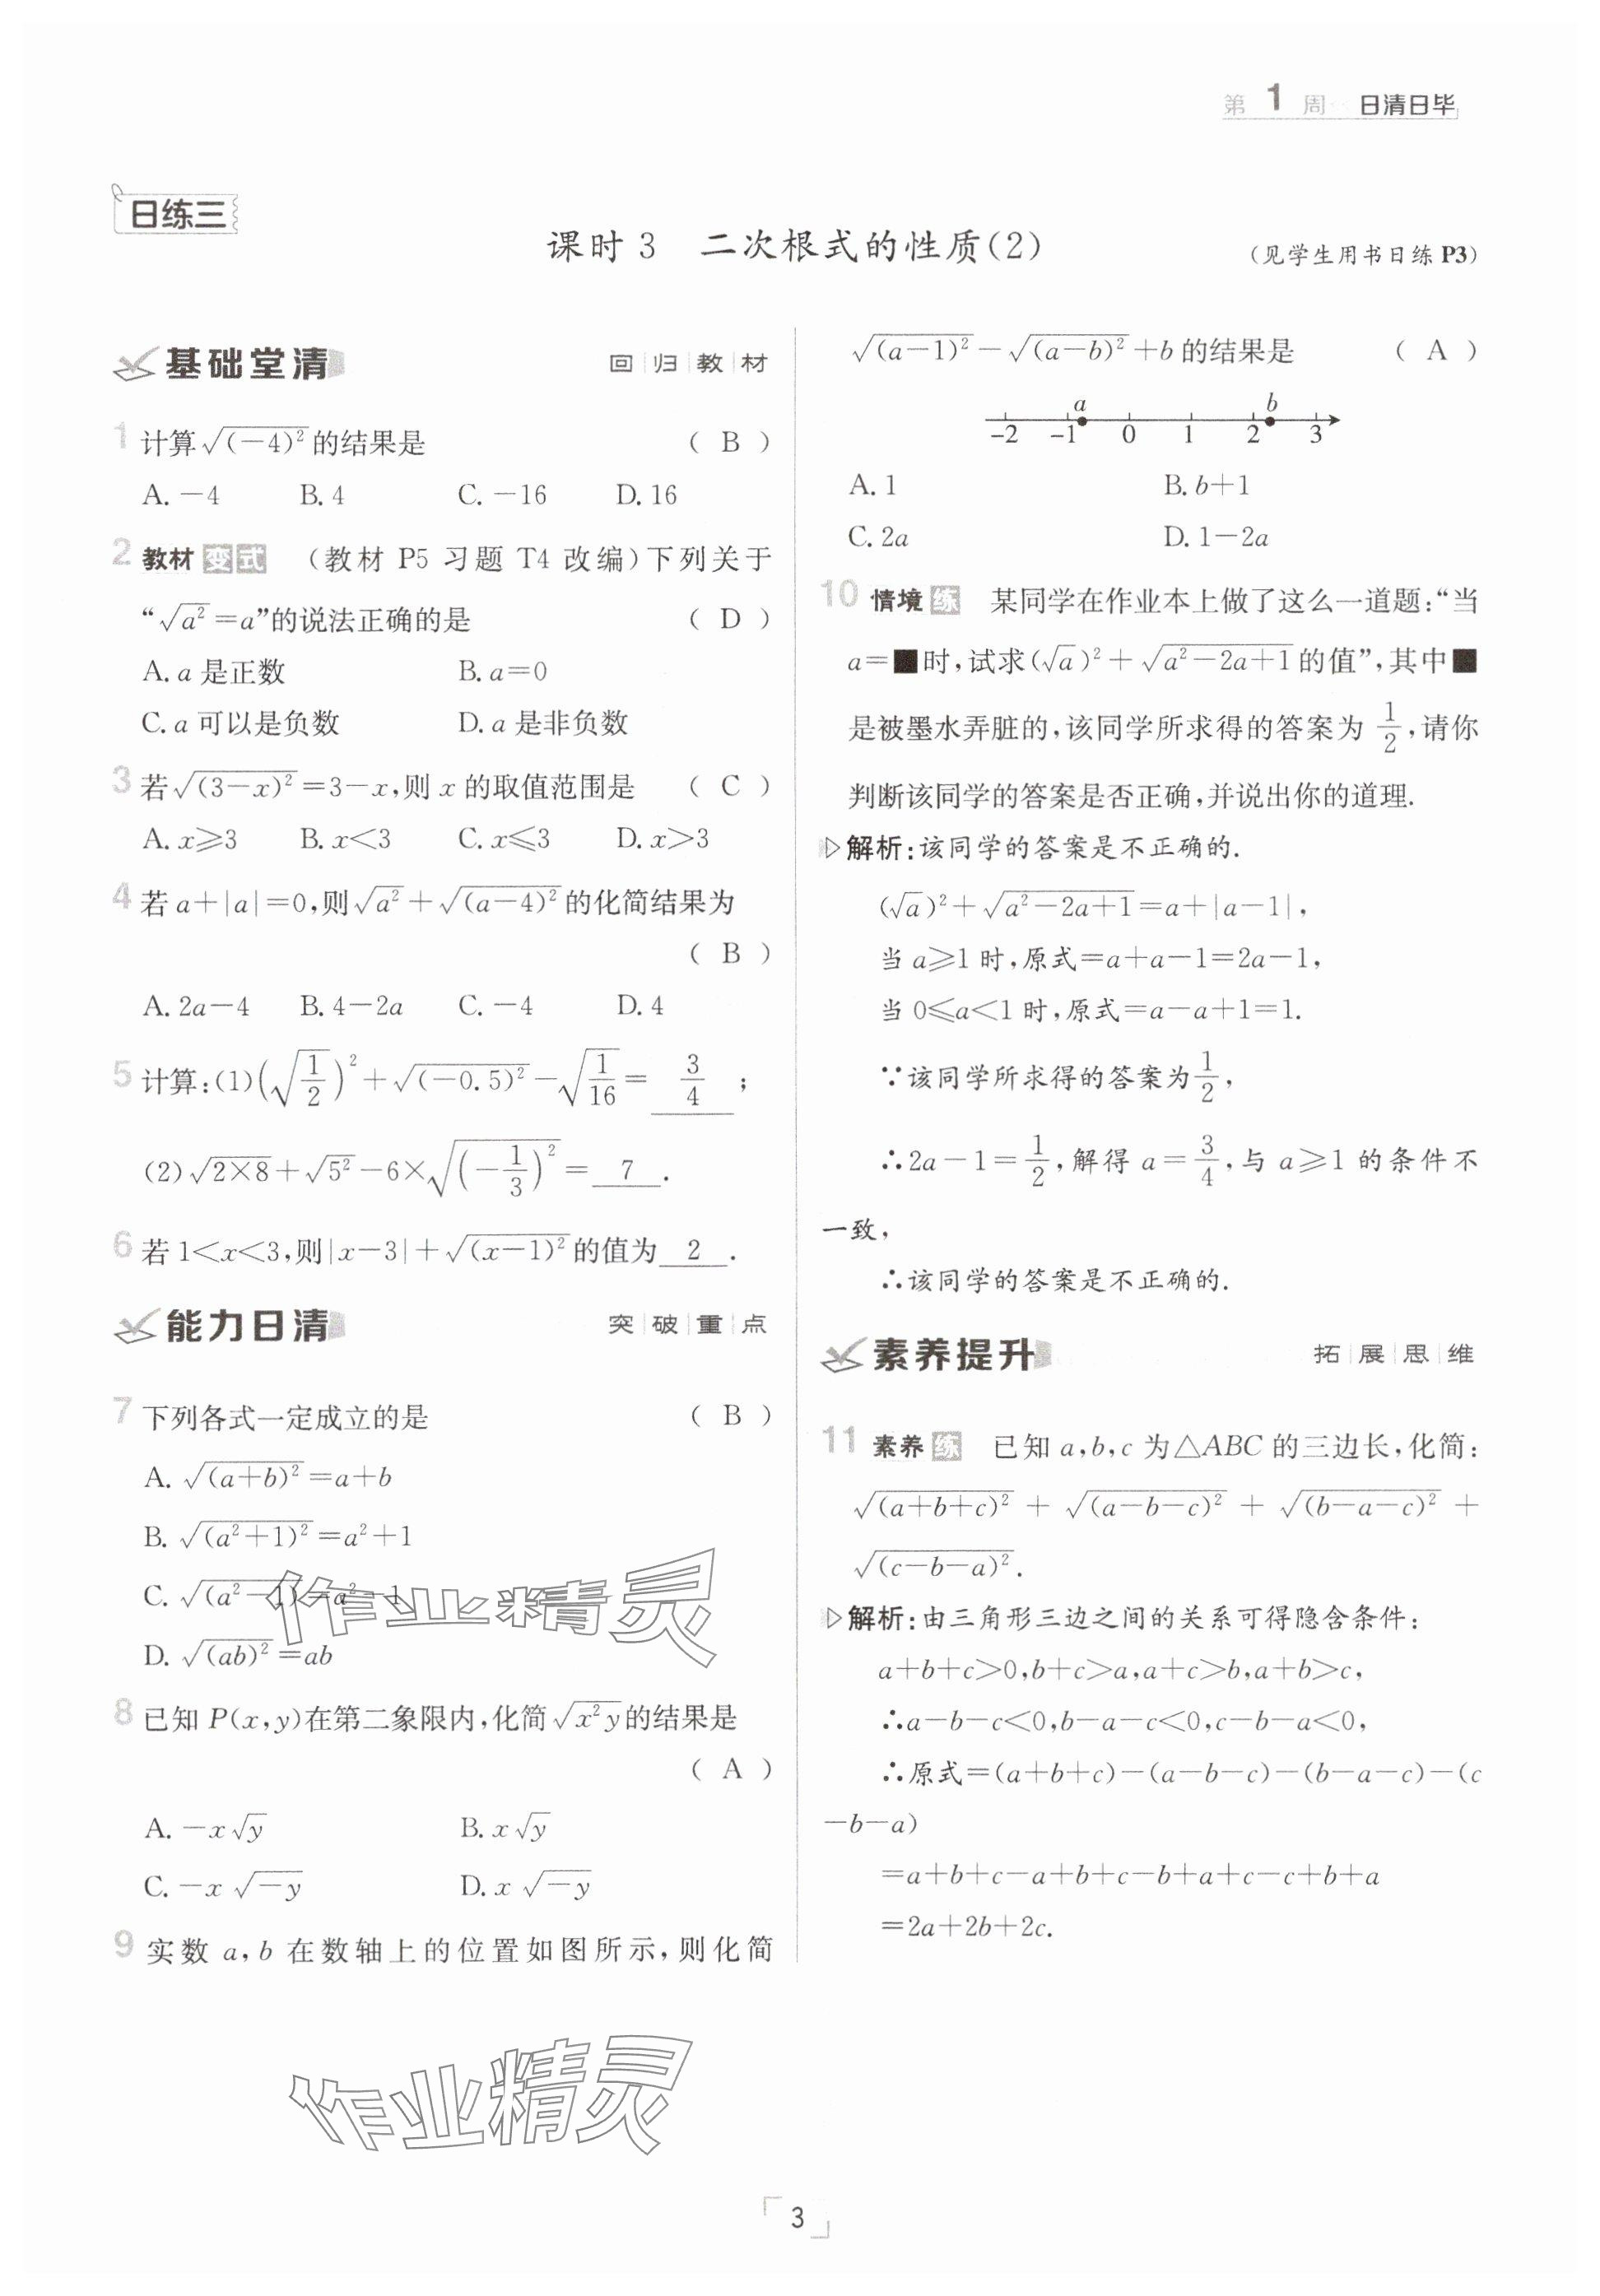 第 1 周 日清日毕
日练三
课时 3 二次根式的性质(2) (见学生用书日练 P3)
基础堂清 回归教材
1 计算√((-4)²)的结果是 ( B )
A. -4 B. 4 C. -16 D. 16
2 教材变式 (教材 P5 习题 T4 改编)下列关于
“√(a²)=a”的说法正确的是 ( D )
A. a 是正数 B. a=0
C. a 可以是负数 D. a 是非负数
3 若√((3-x)²)=3-x,则 x 的取值范围是 ( C )
A. x≥3 B. x<3 C. x≤3 D. x>3
4 若 a+|a|=0,则√(a²)+√((a-4)²)的化简结果为
( B )
A. 2a-4 B. 4-2a C. -4 D. 4
5 计算:(1)(√(1/2))²+√((-0.5)²)-√(1/16)= 3/4 ;
(2)√(2×8)+√(5²)-6×√((-1/3)²)= 7 .
6 若 1<x<3,则|x-3|+√((x-1)²)的值为 2 .
能力日清 突破重点
7 下列各式一定成立的是 ( B )
A. √((a+b)²)=a+b
B. √((a²+1)²)=a²+1
C. √((a²-1))=a²-1
D. √((ab)²)=ab
8 已知 P(x,y)在第二象限内,化简√(x²y)的结果是
( A )
A. -x√y B. x√y
C. -x√(-y) D. x√(-y)
9 实数 a,b 在数轴上的位置如图所示,则化简
√((a-1)²)-√((a-b)²)+b 的结果是 ( A )
a b
-2 -1 0 1 2 3
A. 1 B. b+1
C. 2a D. 1-2a
10 情境练 某同学在作业本上做了这么一道题:“当
a=■时,试求(√a)²+√(a²-2a+1)的值”,其中■
是被墨水弄脏的,该同学所求得的答案为 1/2,请你
判断该同学的答案是否正确,并说出你的道理.
解析:该同学的答案是不正确的.
(√a)²+√(a²-2a+1)=a+|a-1|,
当 a≥1 时,原式=a+a-1=2a-1,
当 0≤a<1 时,原式=a-a+1=1.
∵该同学所求得的答案为1/2,
∴2a-1=1/2,解得 a=3/4,与 a≥1 的条件不
一致,
∴该同学的答案是不正确的.
素养提升 拓展思维
11 素养练 已知 a,b,c 为△ABC 的三边长,化简:
√((a+b+c)²) + √((a-b-c)²) + √((b-a-c)²) +
√((c-b-a)²).
解析:由三角形三边之间的关系可得隐含条件:
a+b+c>0,b+c>a,a+c>b,a+b>c,
∴a-b-c<0,b-a-c<0,c-b-a<0,
∴原式=(a+b+c)-(a-b-c)-(b-a-c)-(c
-b-a)
=a+b+c-a+b+c-b+a+c-c+b+a
=2a+2b+2c.
作业精灵
作业精灵
3